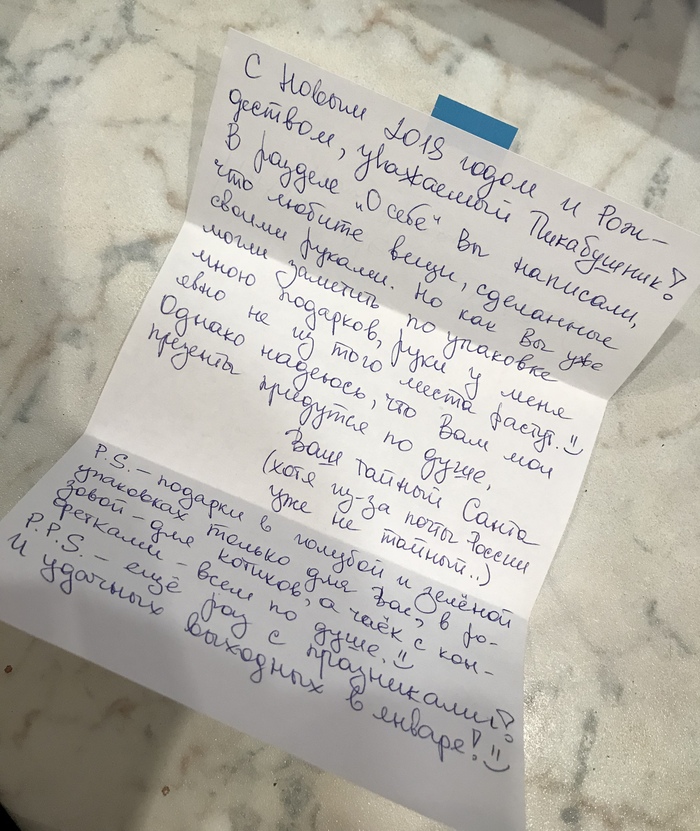 С Новым 2018 годом и Рож-
деством, уважаемый Пикабушник!
В разделе „О себе" Вы написали,
что любите вещи, сделанные
своими руками. Но как Вы уже
могли заметить по упаковке
мною подарков, руки у меня
явно не из того места растут.
Однако надеюсь, что Вам мои
презенты придутся по душе,
Ваш тайный Санта
(хотя из-за почты России
уже не тайный..)
P.S. – подарки в голубой и зелёной
упаковках только для Вас, в ро-
зовой – для котиков, а чаёк с кон-
фетками – всем по душе.
P.P.S. – ещё раз с праздниками!
И удачных выходных в январе!